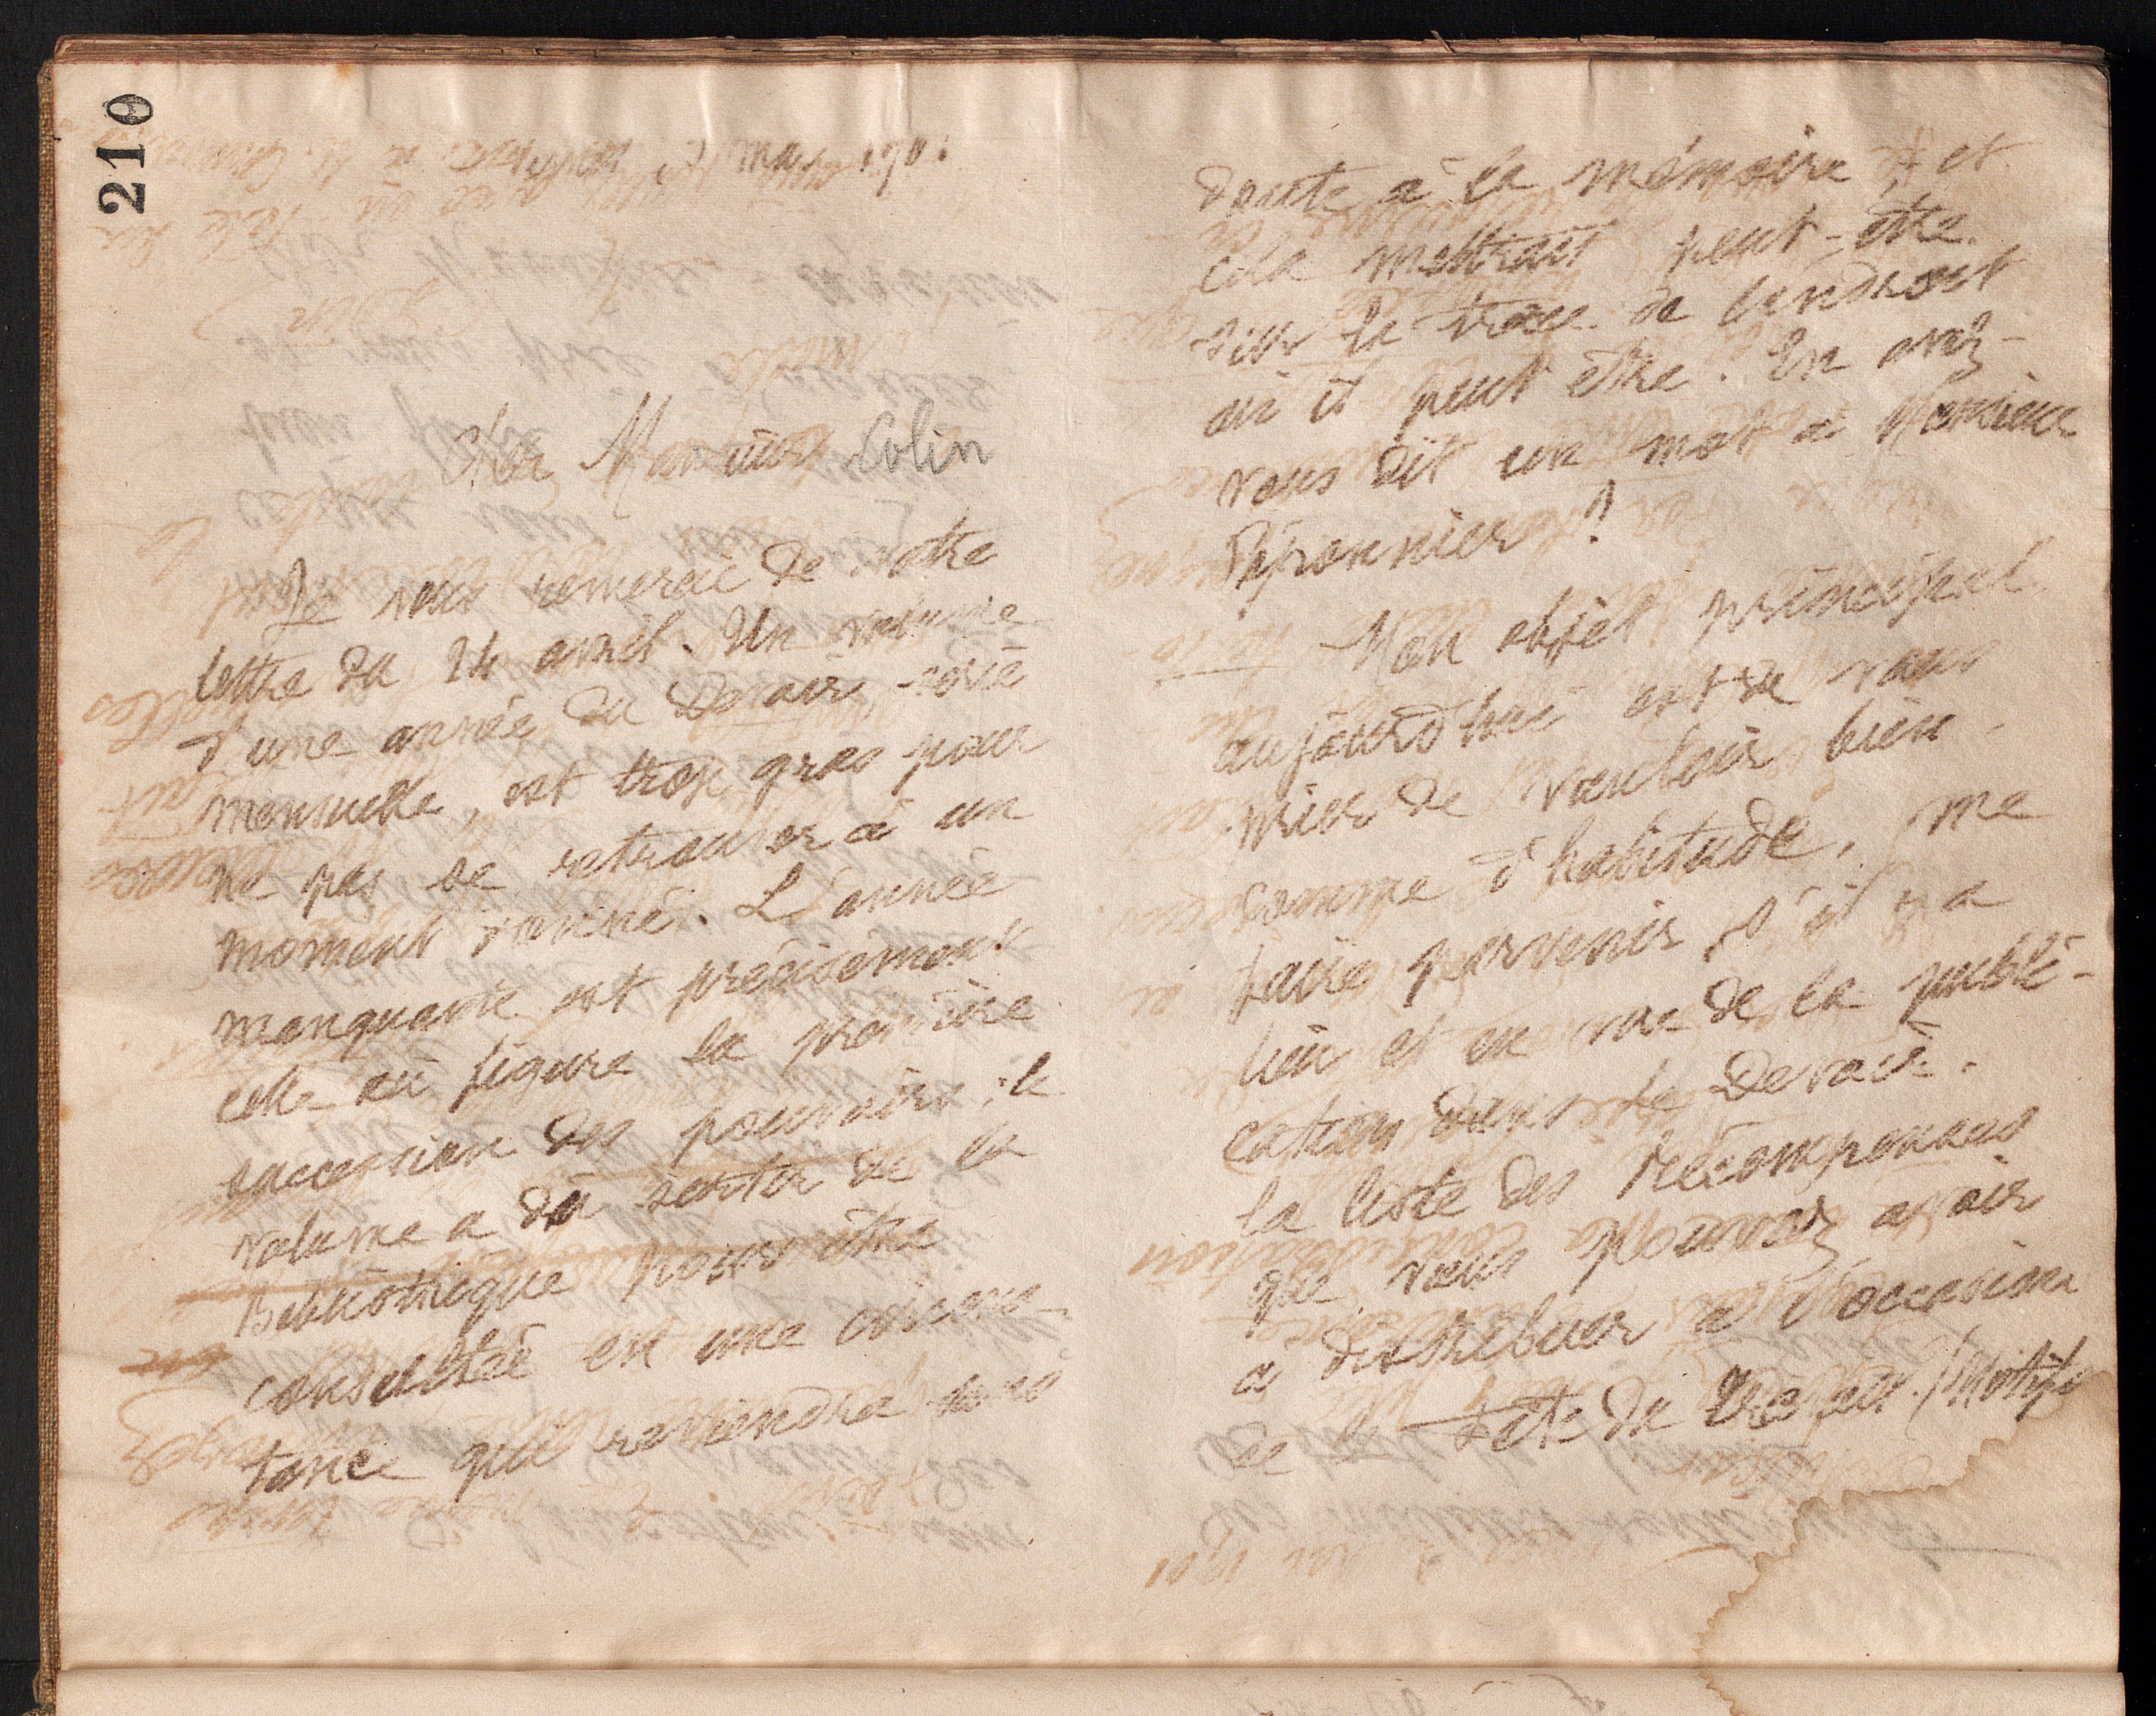 210
mai 1901
Cher Monsieur Colin
Je vous remercie de votre
lettre du 24 avril. Un volume
d'une année du Devoir, série
mensuelle, est trop gros pour
ne pas se retrouver à un
moment donné. L'année
manquante est précisément
celle où figure la première
succession des pouvoirs; le
volume a dû sortir de la
Bibliothèque pour être
consulté en une circons-
tance qui reviendra sans
doute à la mémoire et
cela mettrait peut-être
sur la trace de l'endroit
où il peut être. En avez-
vous dit un mot à Monsieur
Péponnier?
Mon objet principal
aujourd'hui est de vous
prier de vouloir bien,
comme d'habitude, me
faire parvenir s'il y a
lieu et en vue de la publi-
cation dans le Devoir.
la liste des Récompenses
que vous pourrez avoir
à distribuer à l'occasion
de la Fête du Travail. (Motifs